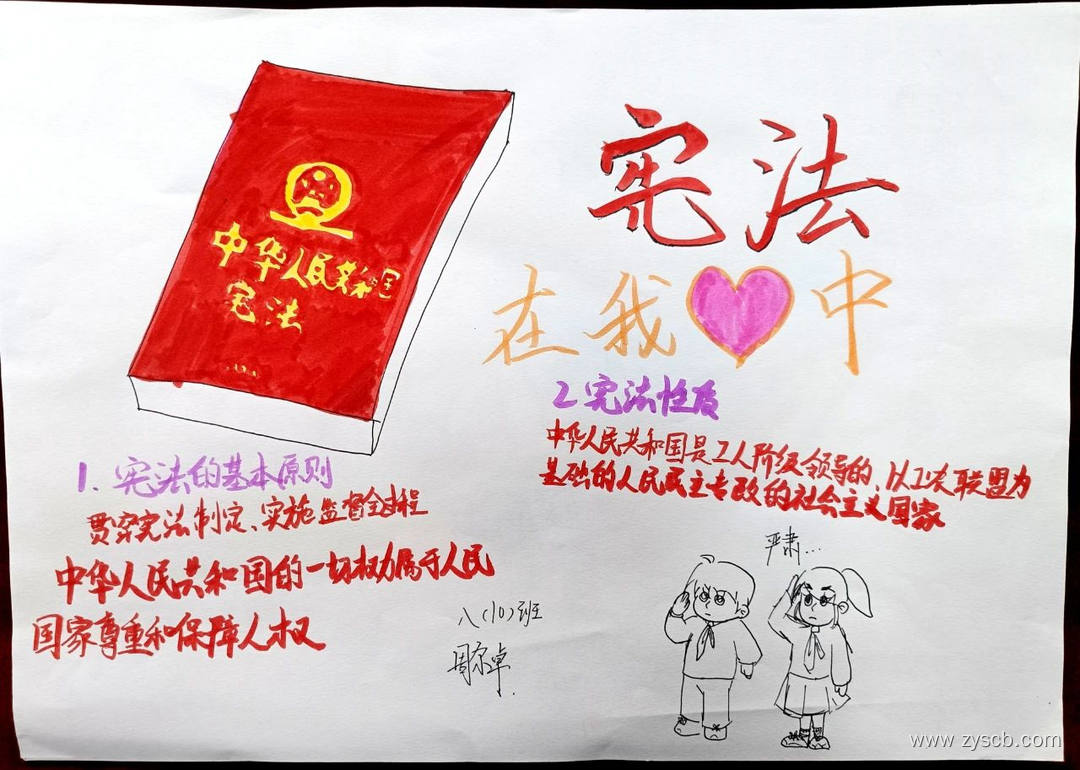 中华人民共和国
宪法
宪法
在我中
1.宪法的基本原则
贯穿宪法制定、实施监督全过程
中华人民共和国的一切权力属于人民
国家尊重和保障人权
2 宪法性质
中华人民共和国是工人阶级领导的、以工农联盟为
基础的人民民主专政的社会主义国家
严肃...
八(10)班
www.zyscb.com